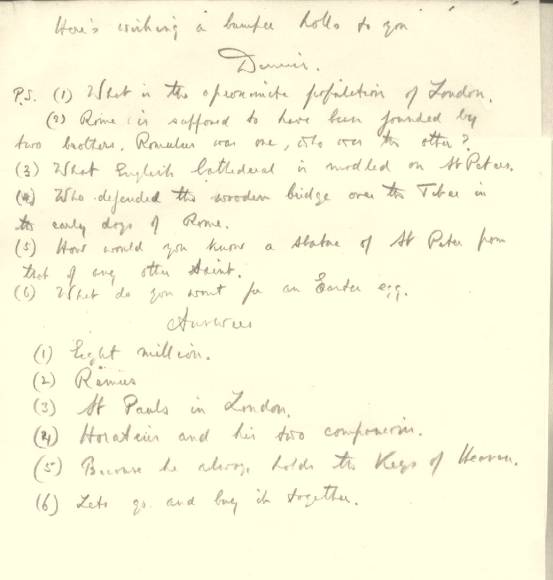 Here's wishing a bumper holls to you
Dennis.
P.S. (1) What is the aproximite population of London.
(2) Rome is supposed to have been founded by
two brothers. Romulus was one, who was the other?
(3) What English Cathederal is modled on St Peters.
(4) Who defended the wooden bridge over the Tiber in
the early days of Rome.
(5) How would you know a statue of St Peter from
that of any other Saint.
(6) What do you want for an Easter egg.
Answers
(1) Eight million.
(2) Remus
(3) St Pauls in London.
(4) Horatius and his two companions.
(5) Because he always holds the Keys of Heaven.
(6) Lets go and buy it together.